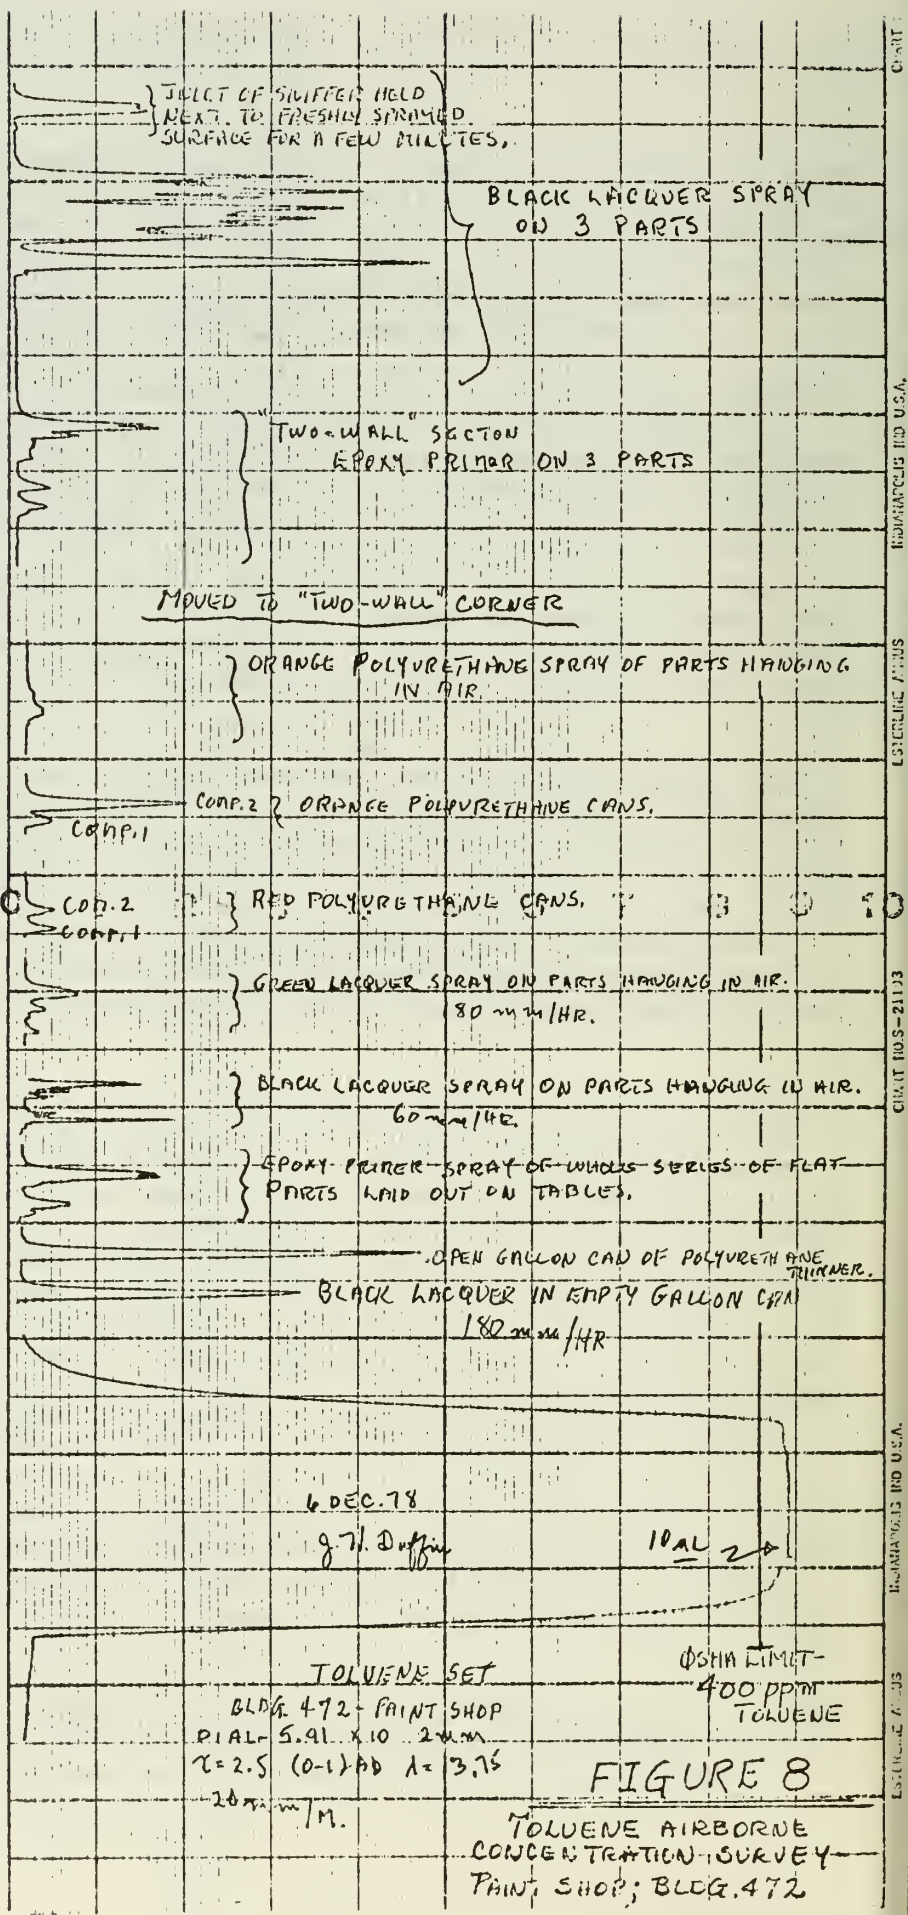 INLET OF SNIFFER HELD
NEXT TO FRESHLY SPRAYED
SURFACE FOR A FEW MINUTES.
BLACK LACQUER SPRAY
ON 3 PARTS
"TWO-WALL" SECTON
EPOXY PRIMER ON 3 PARTS
MOVED TO "TWO-WALL" CORNER
ORANGE POLYURETHANE SPRAY OF PARTS HANGING
IN AIR.
COMP.2 ORANGE POLYURETHANE CANS.
COMP.1
COM.2 RED POLYURETHANE CANS.
COMP.1
GREEN LACQUER SPRAY ON PARTS HANGING IN AIR.
180 mm/HR.
BLACK LACQUER SPRAY ON PARTS HANGING IN AIR.
60 mm/HR.
EPOXY PRIMER SPRAY OF WHOLE SERIES OF FLAT
PARTS LAID OUT ON TABLES.
OPEN GALLON CAN OF POLYURETHANE
THINNER.
BLACK LACQUER IN EMPTY GALLON CAN
180 mm/HR
6 DEC. 78
J. H. Duffin
10
OSHA LIMIT-
400 ppm
TOLUENE
TOLUENE SET
BLDG. 472 - PAINT SHOP
DIAL- 5.91 x10 2mm
τ=2.5 (0-1) λ= 13.75
FIGURE 8
TOLUENE AIRBORNE
CONCENTRATION SURVEY
PAINT SHOP; BLDG. 472
CHART
INDIANAPOLIS IND U.S.A.
ESTERLINE ANGUS
CHART NO.S-21133
INDIANAPOLIS IND U.S.A.
ESTERLINE ANGUS